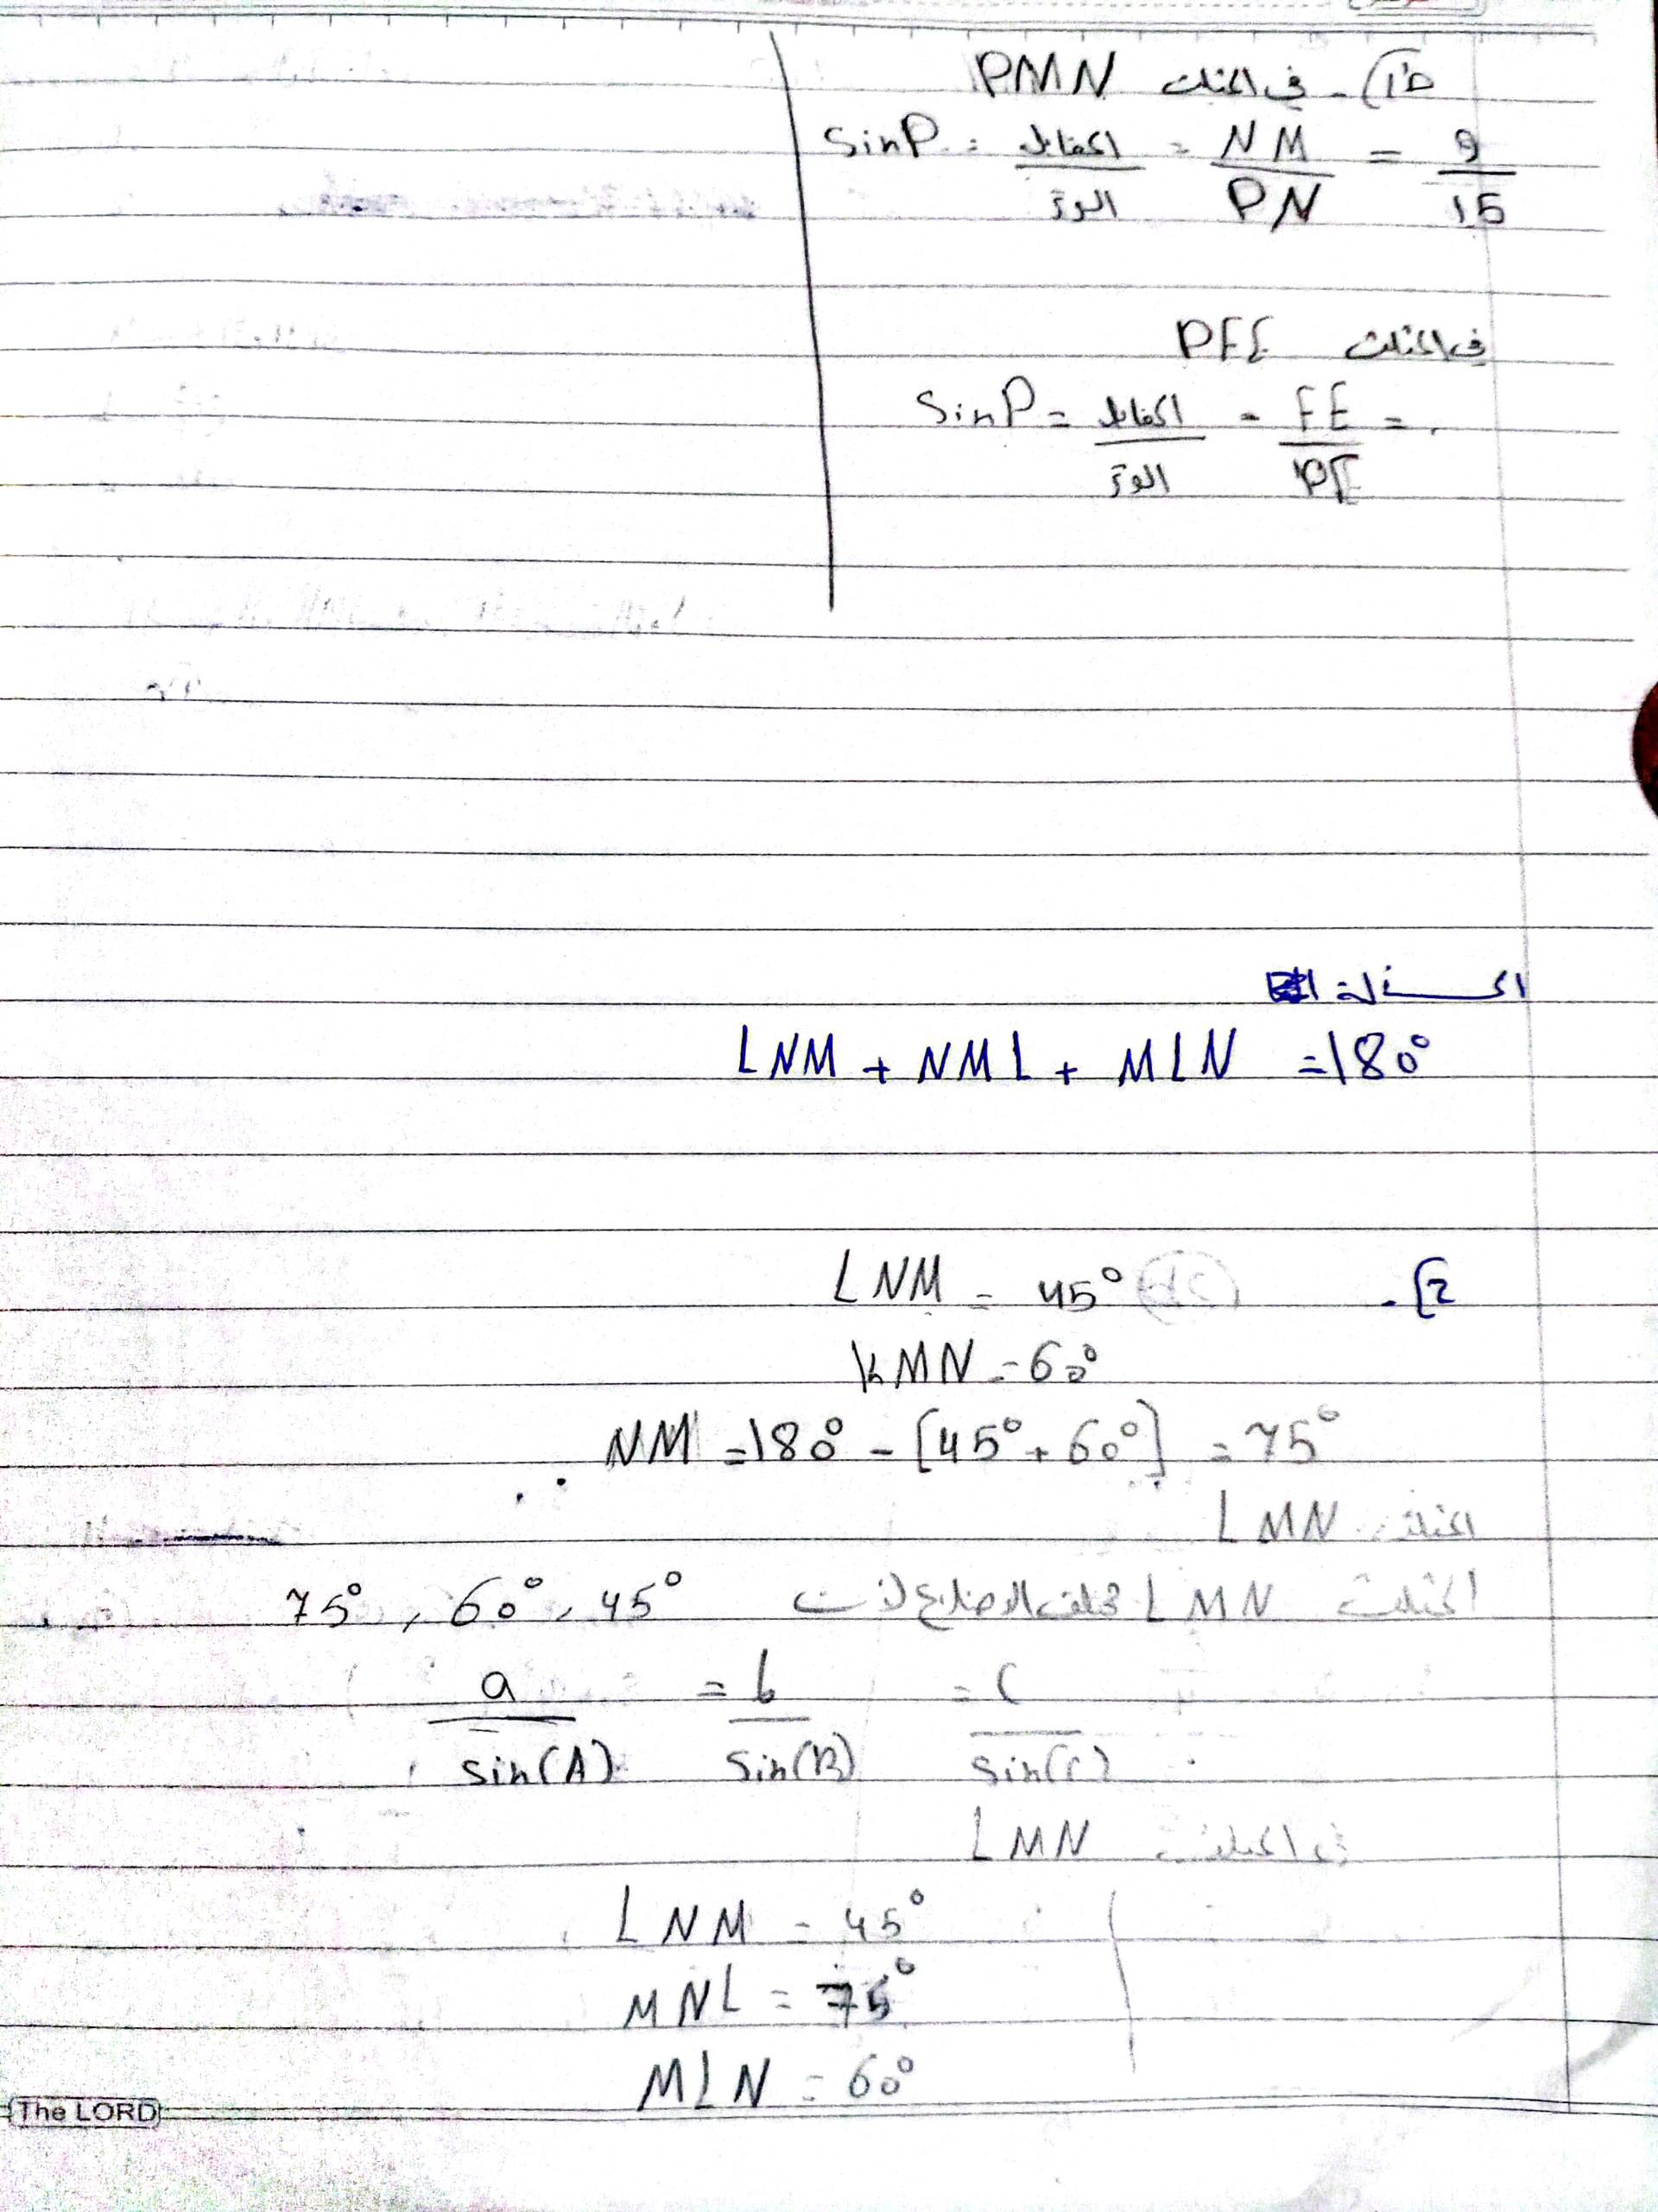 1) - في المثلث PMN
sin P = المقابل / الوتر = NM / PN = 9 / 15
في المثلث PFE
sin P = المقابل / الوتر = FE / PE =
LNM + NML + MLN = 180°
2) - LNM = 45°
KMN = 60°
NM = 180° - [45° + 60°] = 75°
المثلث LMN
المثلث LMN مختلف الاضلاع 45° , 60° , 75°
a / sin(A) = b / sin(B) = c / sin(c)
في المثلث LMN
LNM = 45°
MNL = 75°
MLN = 60°
The LORD